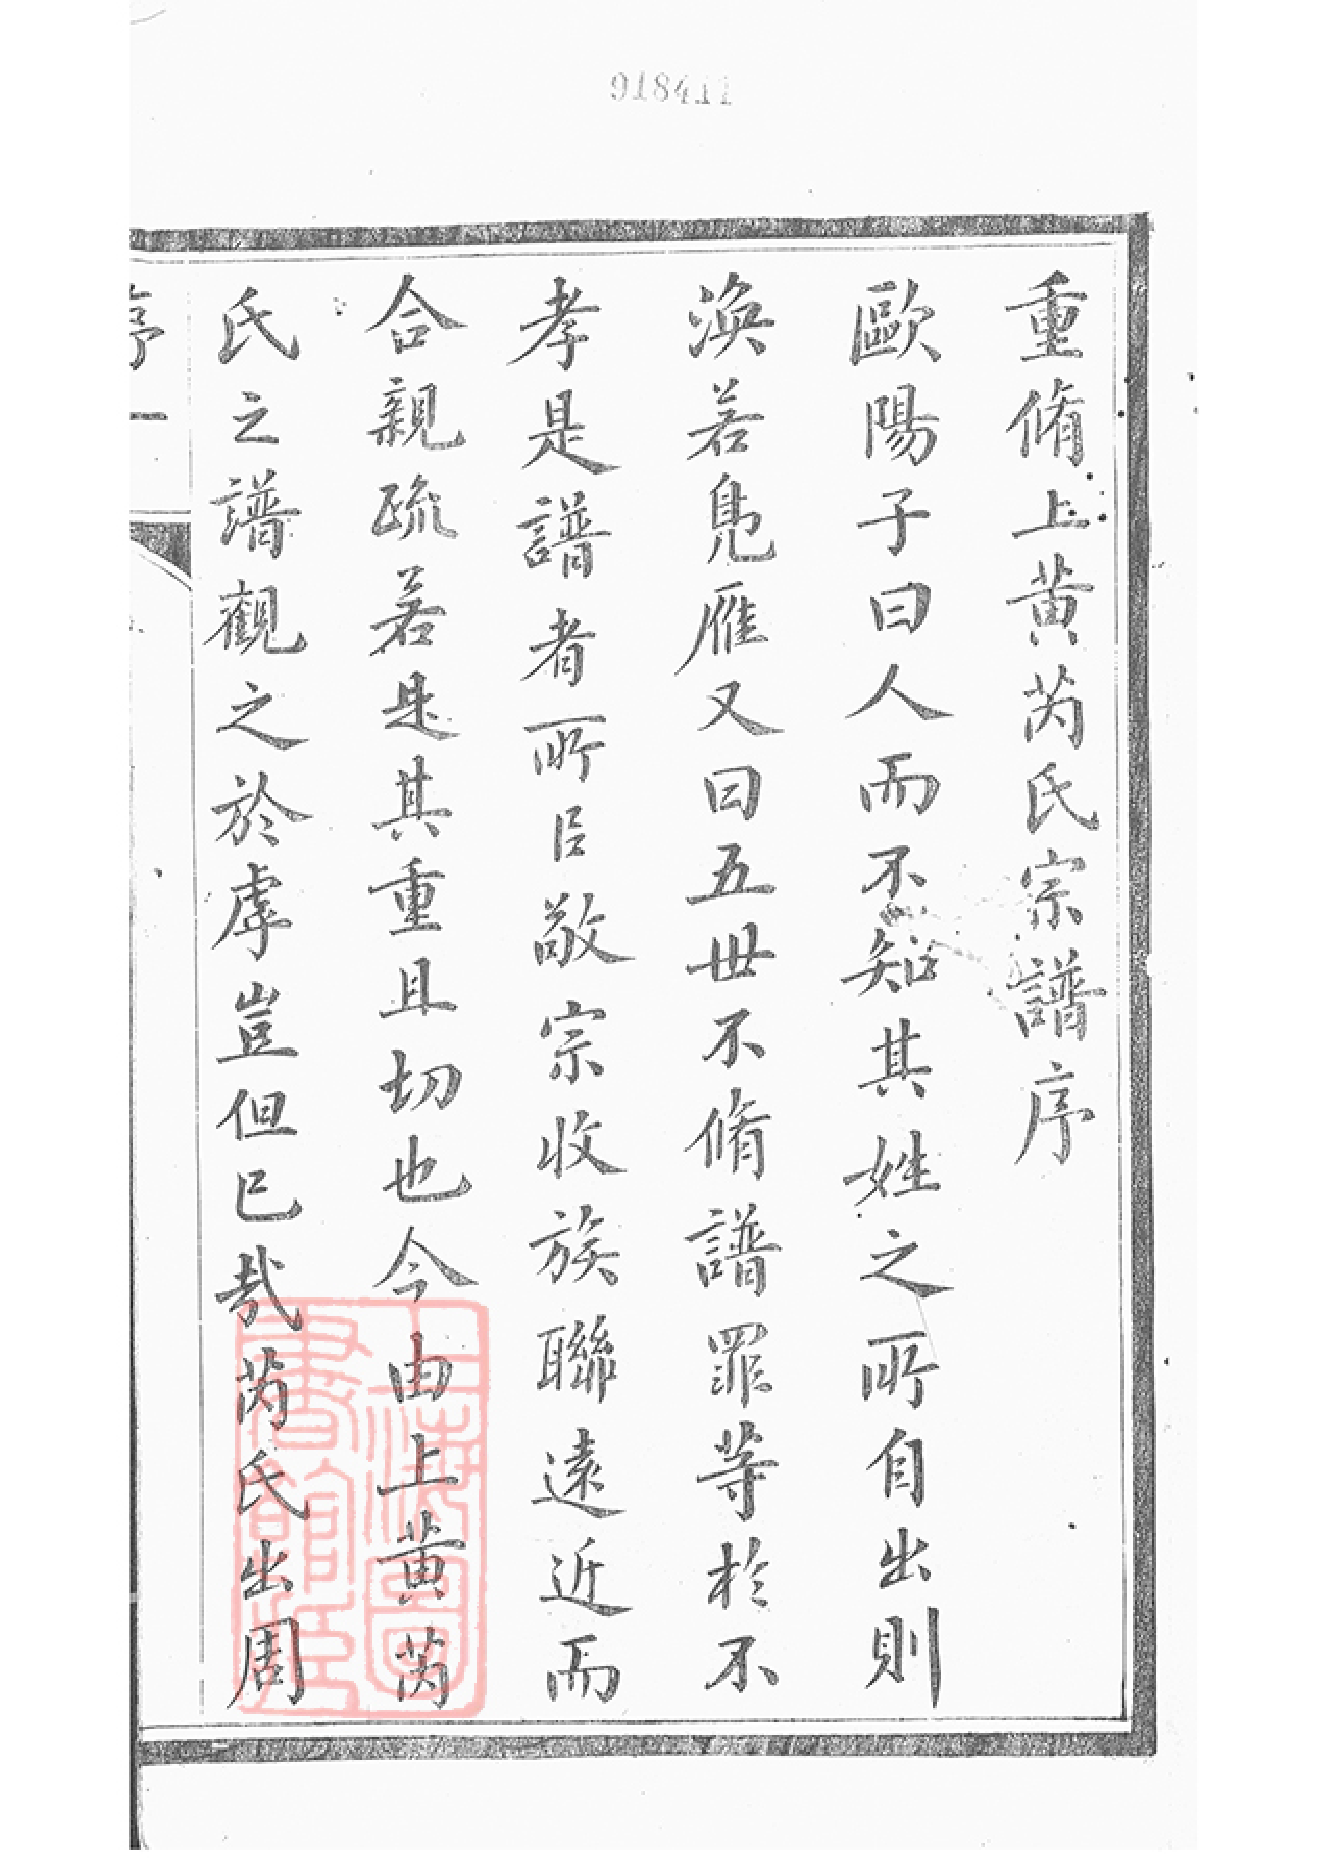 918411
重脩上黄芮氏宗譜序
歐陽子曰人而不知其姓之所自出則
渙若鳧雁又曰五世不脩譜罪等於不
孝是譜者所㠯敬宗收族聯遠近而
合親疏若是其重且切也今由上黄芮
氏之譜觀之於虖豈但已哉芮氏出周
序 一
上海圖
書館藏